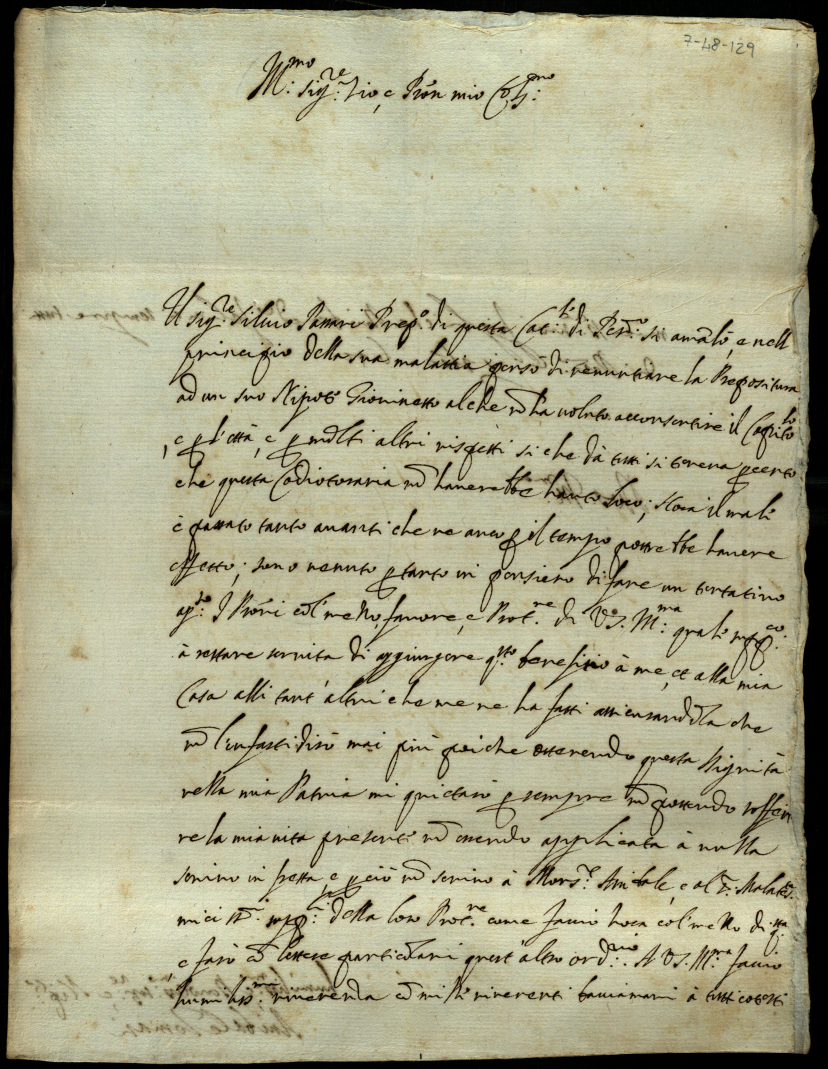 7-48-129
Ill:mo Sig:re Zio, e Pron mio Col:mo
Il Sig:re Silvio Prep:o di questa Cat:le di Pes:ro si amalò, e nell
principio della sua malattia pensò di renuntiare la Prepositura
ad un suo Nipote Giovinetto al che nõ ha voluto acconsentire il Capito:lo
e p l'età, e p molti altri rispetti si che da tutti si teneva p certo
che questa Codiotoraria nõ haverebbe hauto loco; il male
è passato tanto avanti che ne anco p il tempo potrebbe havere
effetto; sono venuto p tanto in pensiero di fare un tentativo
ap:so I Proñi col mezzo, favore, e Prot:ne di V.S. Ill:ma quale
à restare servita di aggiungere q:sto benefitio à me, et alla mia
Casa alli tant'altri che me ne ha fatti assicurandola che
nõ l'infastidirò mai più poiche ottenendo questa dignità
nella mia Patria mi quietarò p sempre nõ potendo
re la mia vita presente nõ essendo applicata à nulla
scrivo in fretta e p ciò nõ scrivo à Mons:re Anibale, e al S. Malat:a
miei della loro Prot:ne come faccio hora col mezzo di q:sta
e farò cõ lettere particolari quest'altro ord:rio. A V.S. Ill:ma faccio
humiliss:ma riverenza cõ mille riverenti bacciamani à tutti cotesti